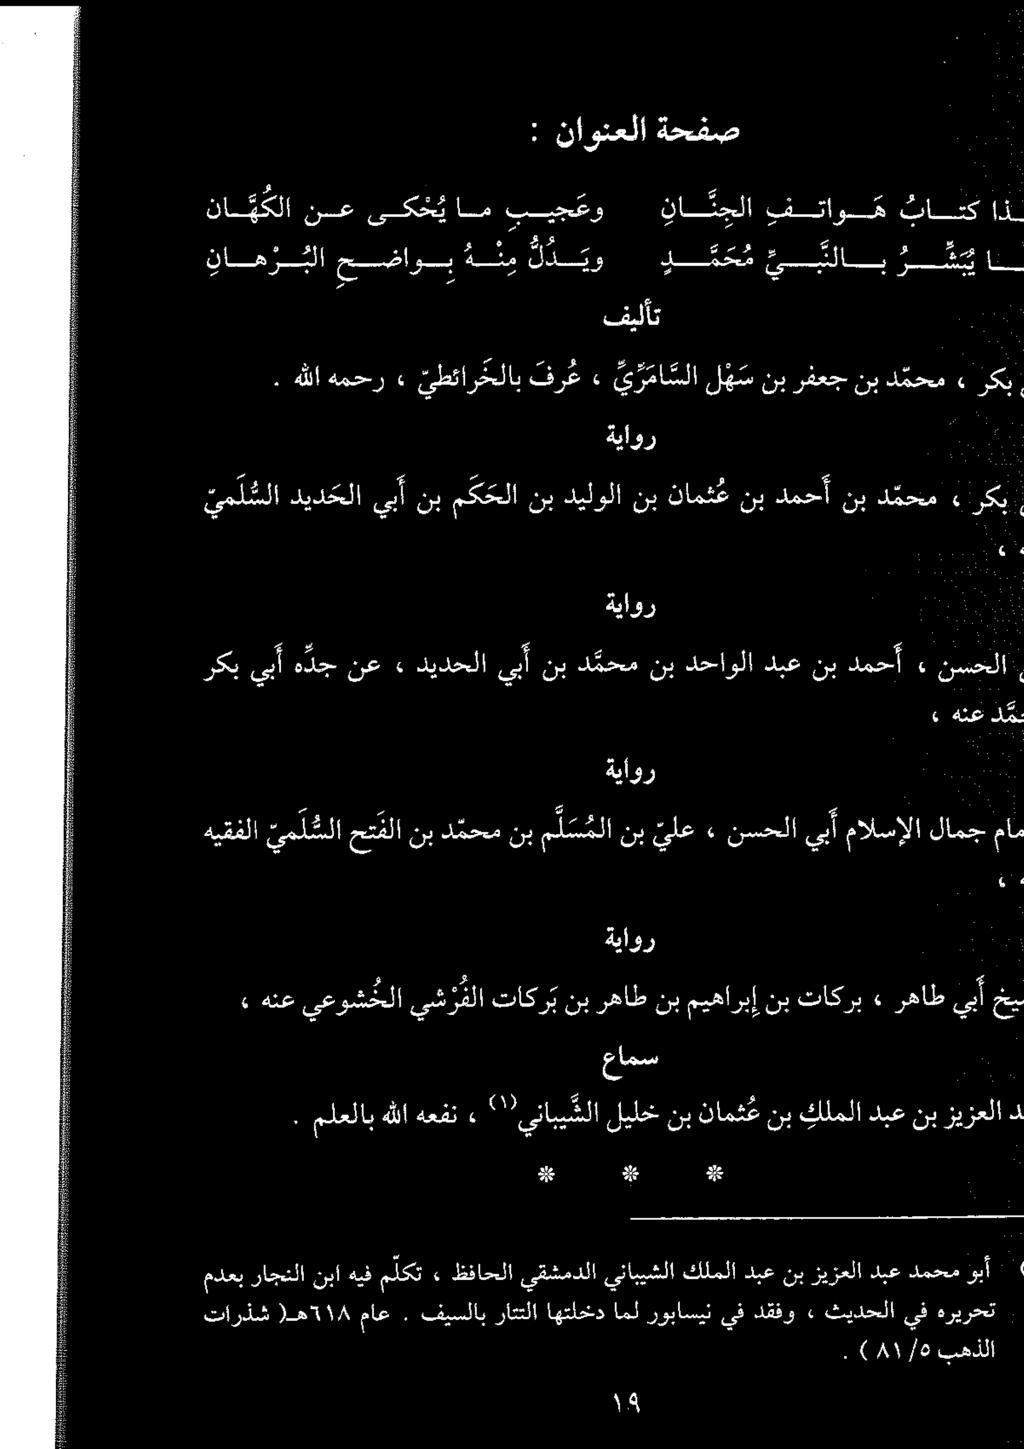 صفحة العنوان :
كتابُ هَواتفِ الجِنَّانِ وعَجيبِ ما يُحْكى عن الكُهَّان
يُبَشِّرُ بالنَّبيِّ مُحَمَّدٍ ويَدُلُّ مِنْهُ بِواضحِ البُرْهانِ
تأليف
بكر ، محمّد بن جعفر بن سَهْل السَّامَرِّيِّ ، عُرفَ بالخَرائطيّ ، رحمه الله .
رواية
بكر ، محمّد بن أحمد بن عُثمان بن الوليد بن الحَكَم بن أبي الحَديد السُّلَميّ
،
رواية
الحسن ، أحمد بن عبد الواحد بن محمَّد بن أبي الحديد ، عن جدِّه أبي بكر
عنه ،
رواية
جمال الإسلام أبي الحسن ، عليّ بن المُسَلَّم بن محمّد بن الفَتح السُّلَميّ الفقيه
،
رواية
أبي طاهر ، بركات بن إبراهيم بن طاهر بن بَركات الفُرْشي الخُشوعي عنه ،
سماع
العزيز بن عبد الملكِ بن عُثمان بن خليل الشَّيباني(١) ، نفعه الله بالعلم .
* * *
أبو محمد عبد العزيز بن عبد الملك الشيباني الدمشقي الحافظ ، تكلّم فيه ابن النجار بعدم
تحريره في الحديث ، وفقد في نيسابور لما دخلتها التتار بالسيف . عام ٦١٨هـ( شذرات
الذهب ٥/ ٨١ ) .
١٩